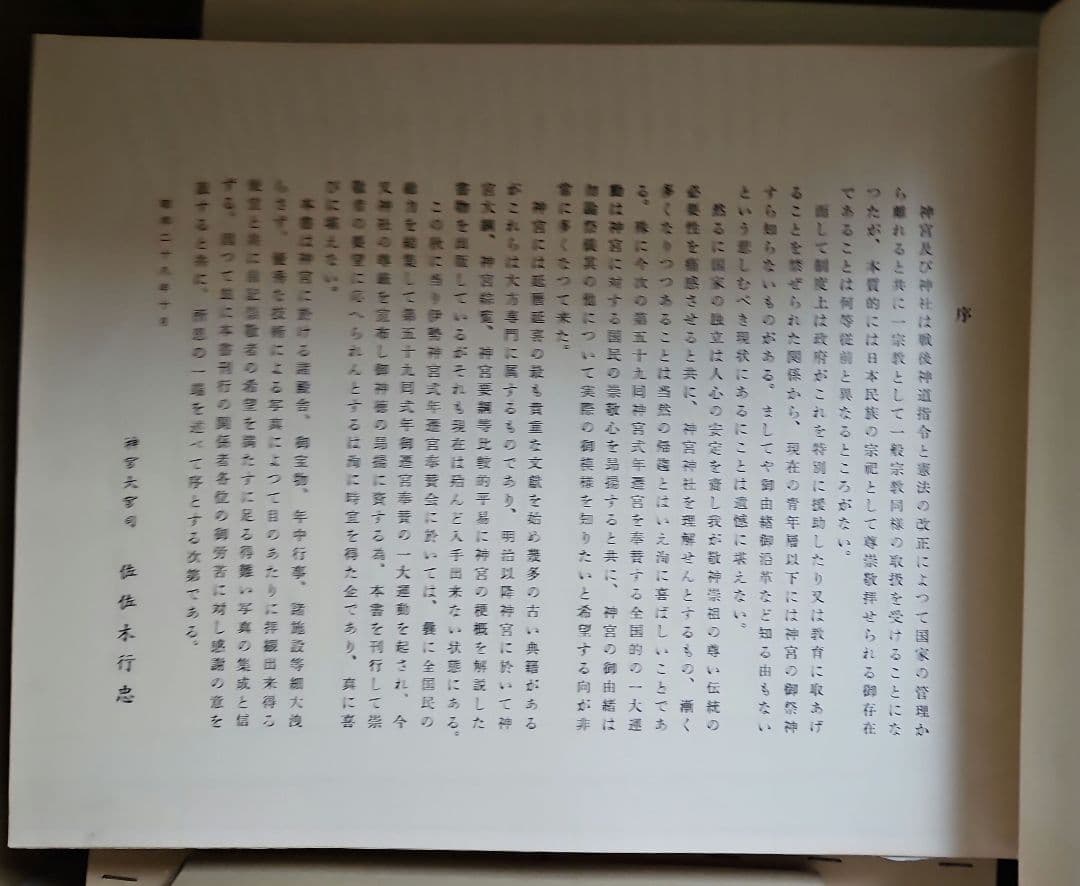 序
神宮及び神社は戦後神道指令と憲法の改正によつて国家の管理か
ら離れると共に一宗教として一般宗教同様の取扱を受けることにな
つたが、本質的には日本民族の宗祀として尊崇敬拝せられる御存在
であることは何等従前と異なるところがない。
而して制度上は政府がこれを特別に援助したり又は教育に取あげ
ることを禁ぜられた関係から、現在の青年層以下には神宮の御祭神
すら知らないものがある。ましてや御由緒御沿革など知る由もない
という悲しむべき現状にあるにことは遺憾に堪えない。
然るに国家の独立は人心の安定を斎し我が敬神崇祖の尊い伝統の
必要性を痛感させると共に、神宮神社を理解せんとするもの、漸く
多くなりつつあることは当然の帰趨とはいえ洵に喜ばしいことであ
る。殊に今次の第五十九回神宮式年遷宮を奉賛する全国的の一大運
動は神宮に対する国民の崇敬心を昂揚すると共に、神宮の御由緒は
勿論祭儀其の他について実際の御模様を知りたいと希望する向が非
常に多くなつて来た。
神宮には延暦延喜の最も貴重な文献を始め幾多の古い典籍がある
がこれらは大方専門に属するものであり、明治以降神宮に於いて神
宮大綱、神宮綜覧、神宮要綱等比較的平易に神宮の梗概を解説した
書物を出版しているがそれも現在は殆んど入手出来ない状態にある。
この秋に当り伊勢神宮式年遷宮奉賛会に於いては、曩に全国民の
総力を結集して第五十九回式年御遷宮奉賛の一大運動を起され、今
又神社の尊厳を宣布し御神徳の昂揚に資する為、本書を刊行して崇
敬者の要望に応へられんとするは洵に時宜を得た企であり、真に喜
びに堪えない。
本書は神宮に於ける諸殿舎、御宝物、年中行事、諸施設等細大洩
らさず、優秀な技術による写真によつて目のあたりに拝観出来得る
便宜と共に自証崇敬者の希望を満たすに足る得難い写真の集成と信
ずる。因つて茲に本書刊行の関係者各位の御労苦に対し感謝の意を
表すると共に、所思の一端を述べて序とする次第である。
昭和二十九年十月
神宮大宮司 佐佐木行忠